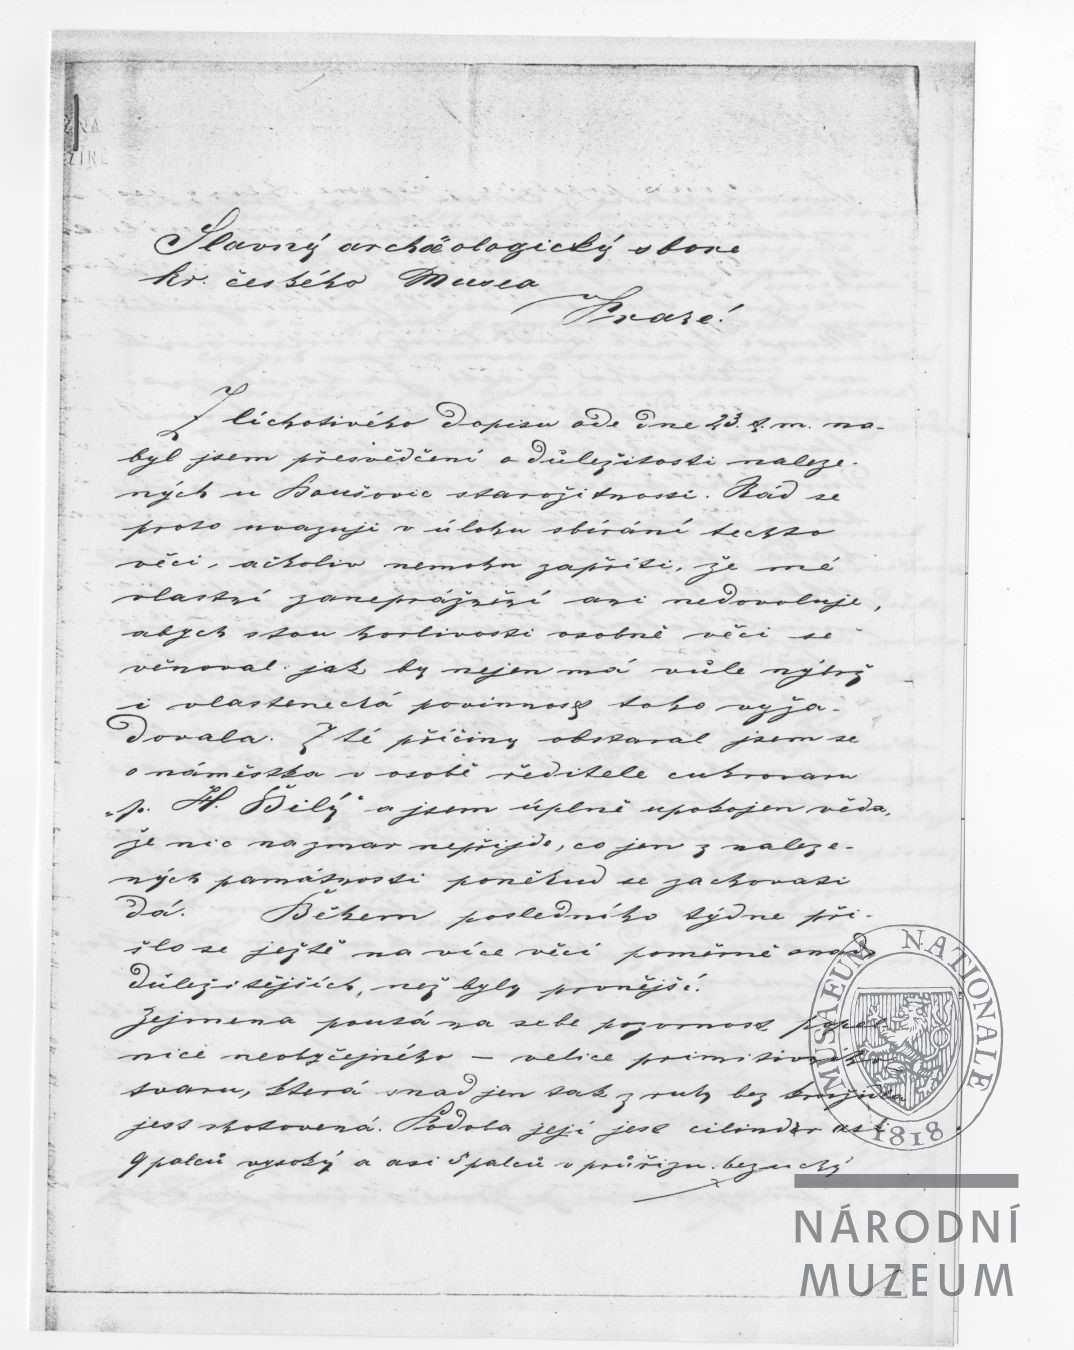 Slavný archäologický sbore
kr. českého Musea
v Praze!
Z lichotivého dopisu ode dne 23. t. m. na-
byl jsem přesvědčení o důležitosti naleze-
ných u Boušovic starožitnosti. Rád se
proto uvazuji v úlohu sbírání techto
věci, ačkoliv nemohu zapříti, že mé
vlastní zaneprážnění ani nedovoluje,
abych stou horlivosti osobně věci se
věnoval jak by nejen má vůle nýbrž
i vlastenecká povinnost toho vyža-
dovala. Z té příčiny obstaral jsem se
o náměstka v osobě ředitele cukrovaru
„p. H. Bilý" a jsem úplně upokojen věda,
že nic nazmar nepřijde, co jen z naleze-
ných památnosti poněkud se zachovati
dá. Během posledního týdne při-
šlo se ještě na více věcí poměrně snad
důležitějších, než byly prvnější.
Zejmena poutá na sebe pozornost popel-
nice neobyčejného — velice primitivního
tvaru, která snad jen tak z ruky bez kružidla
jest shotovená. Podoba její jest cilindr asi
9 palců vysoký a asi 5 palců v průřizu. bezucký
MUSAEUM NATIONALE
1818
NÁRODNÍ
MUZEUM